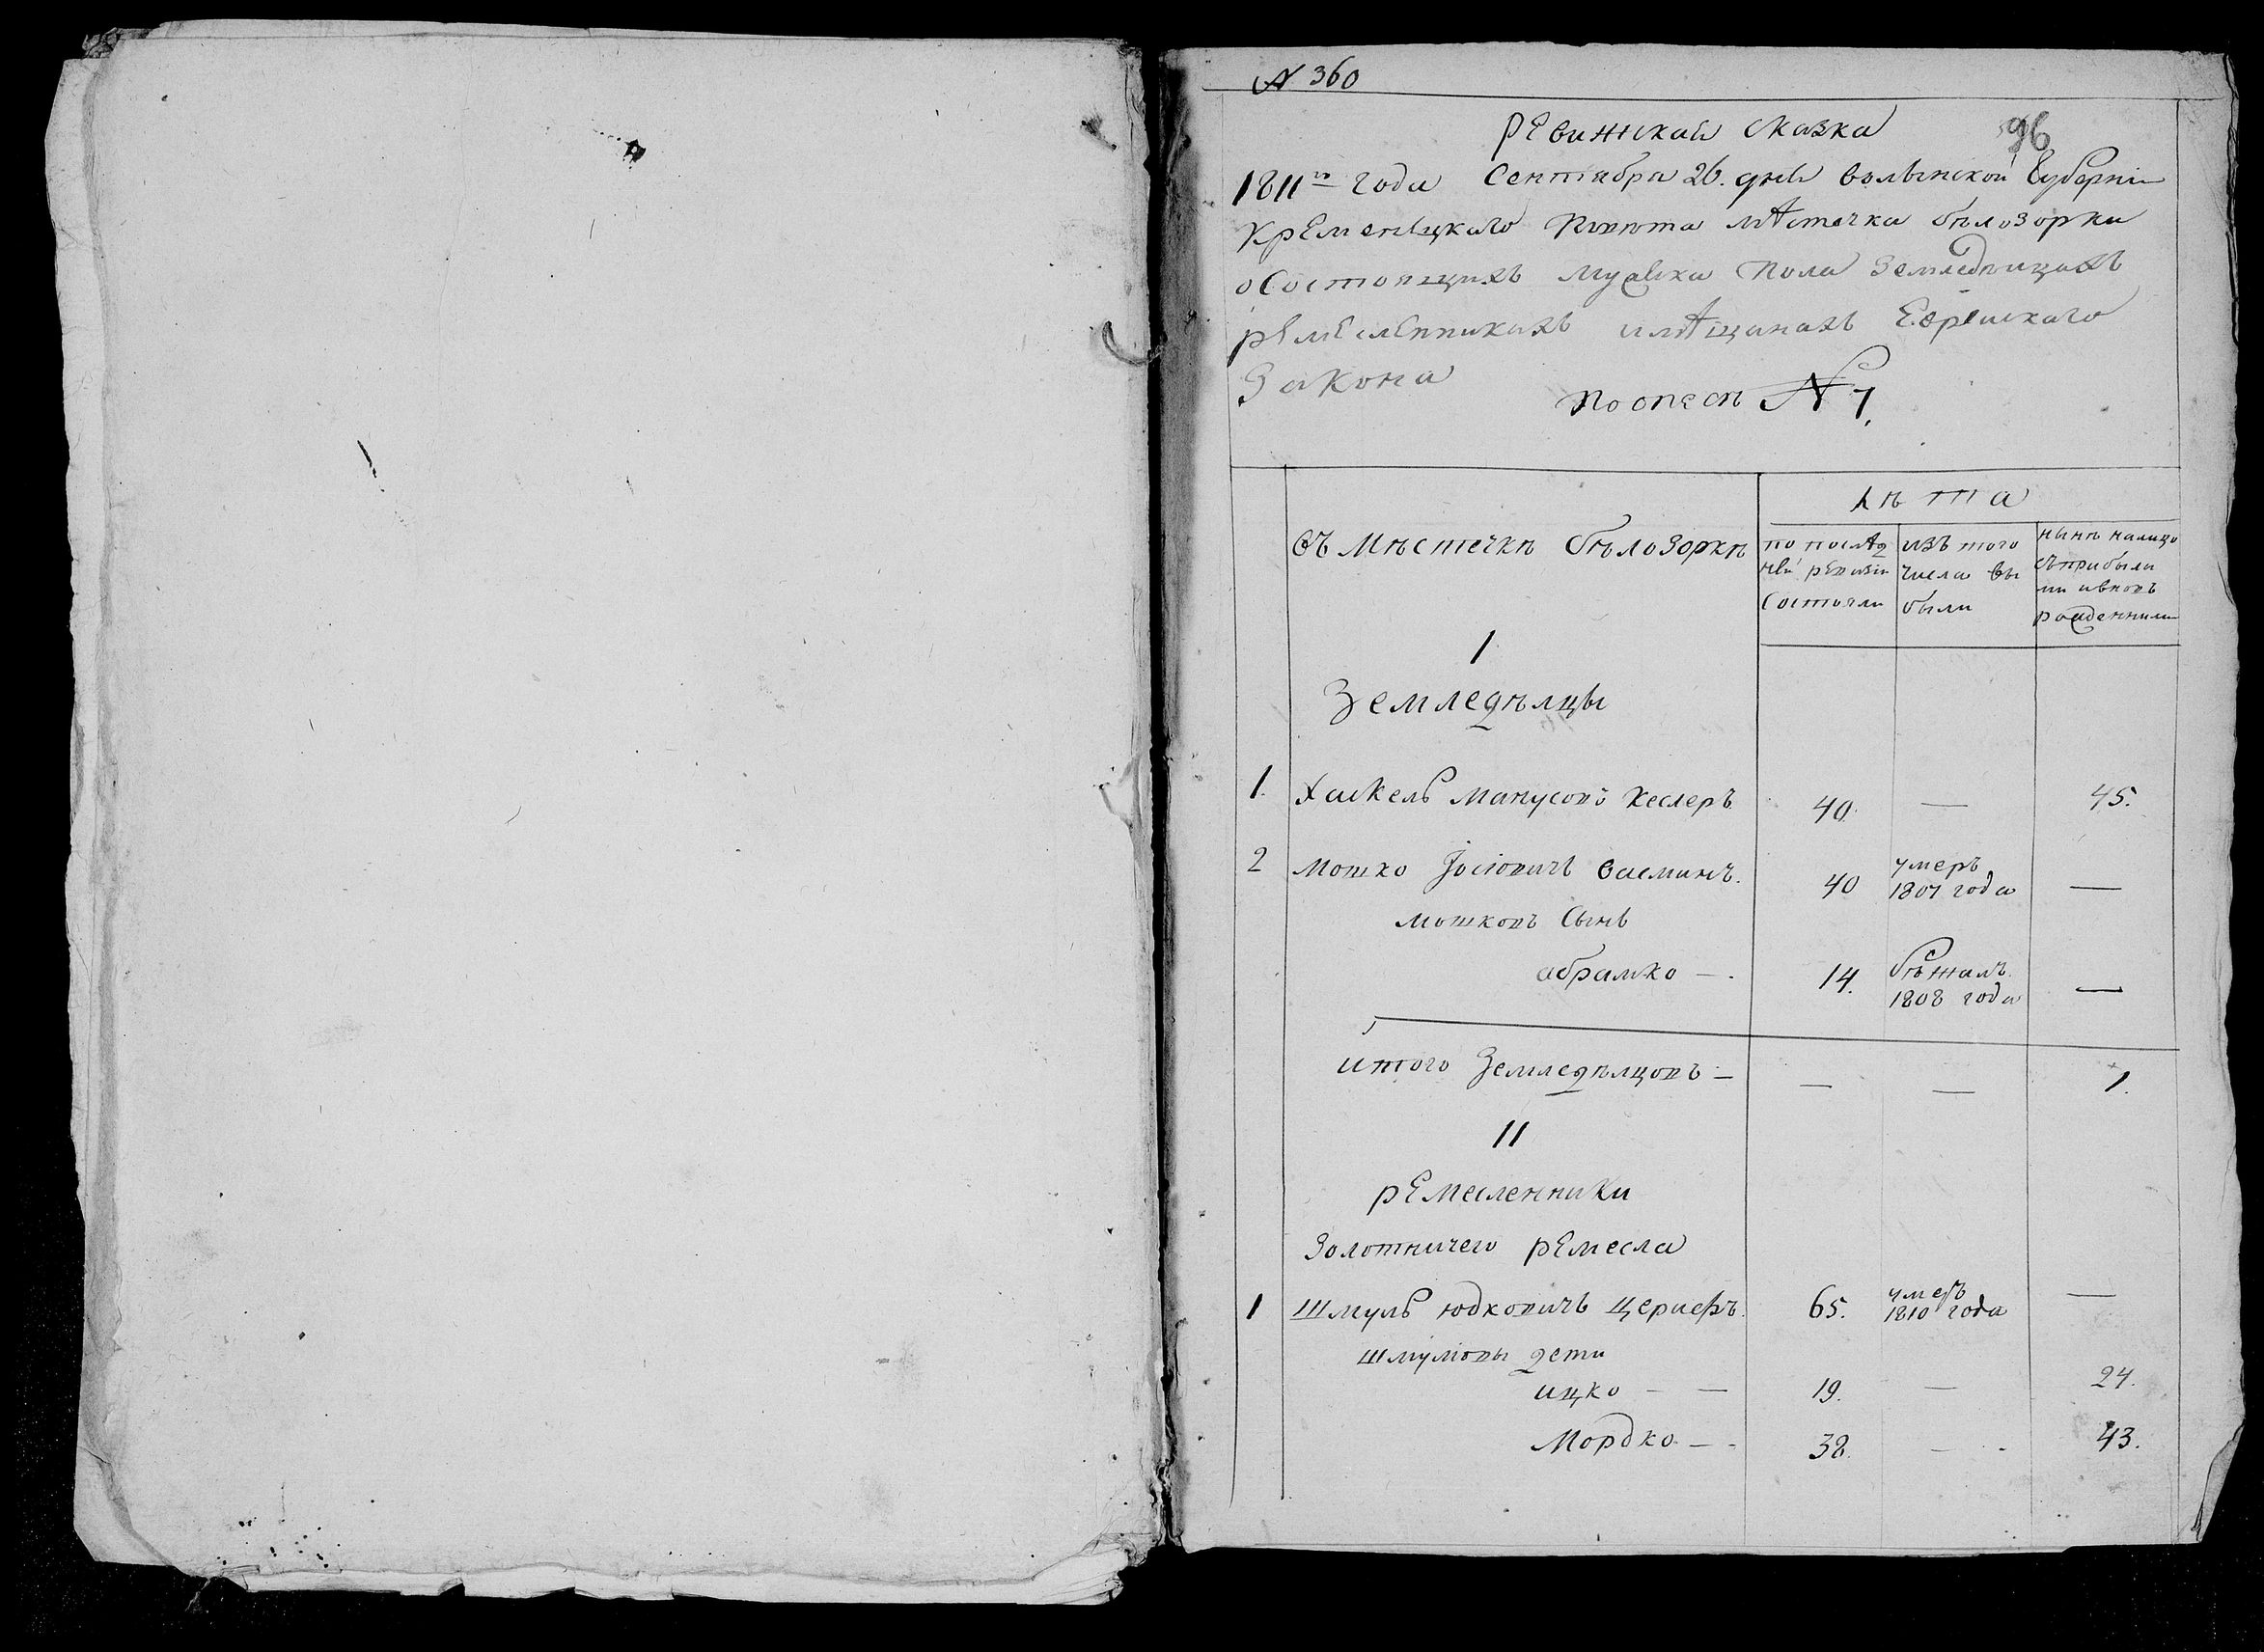 N 360
96
Ревижская сказка
1811го года Сентября 26. дня волынской Губернии
Кременецкаго Повѣта мѣстечка бѣлозорки
о Состоящихъ мужска Пола Земледѣлцахъ
ремесленникахъ и мѣщанахъ Еврейскаго
Закона
N 1.
лѣта
въ мѣстечкѣ бѣлозоркѣ
по послѣд
ней ревизіи
состояли
изъ того
числа вы
были
нынѣ налицо
съ прибыли
ми и вновь
рожденными
I
Земледѣлцы
1. Хаскель Манусовъ Кеслеръ 40. — 45.
2 Мошко Іосіовичъ васманъ. 40 умеръ
1807 года —
мошковъ Сынъ
абрамко — . 14. бѣжалъ
1808 года —
итого Земледѣлцовъ — — — 1.
II
ремесленники
Золотничего ремесла
1 Шмуль юдковичъ церифъ. 65. умеръ
1810 года —
шмуліовы дети
ицко — — 19. — 24.
Мордко — - 38. — . 43.